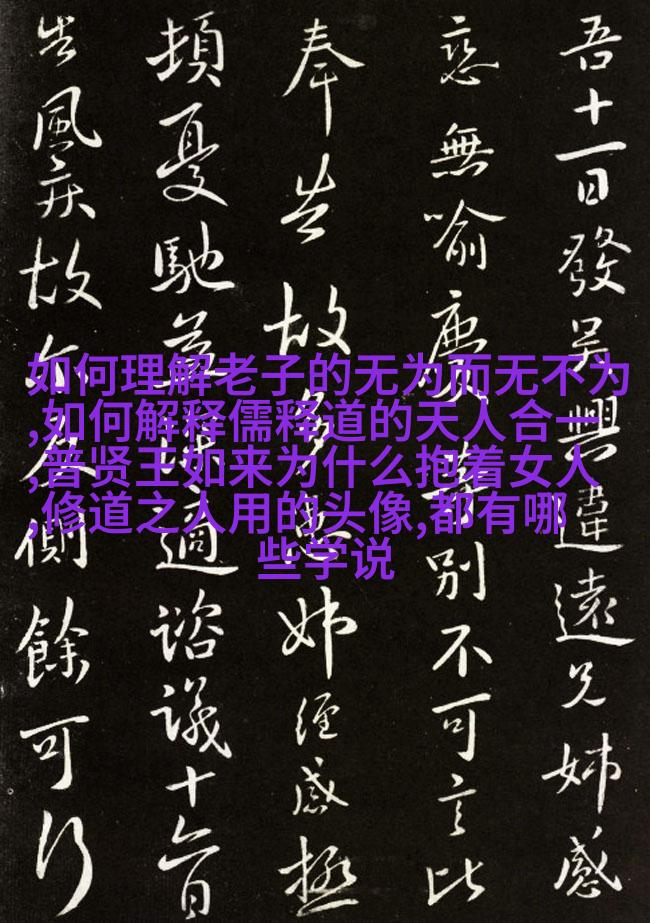 如何理解老子的无为而无不为
,如何解释儒释道的天人合一
,普贤王如来为什么抱着女人
,修道之人用的头像,都有哪
些学说
吾十一日發吳興違遠兄姊感
戀無喻慶等別不可言比
奉告故多患姊經感極
頓憂馳益適諮議十六日
告風疾故側餘可行